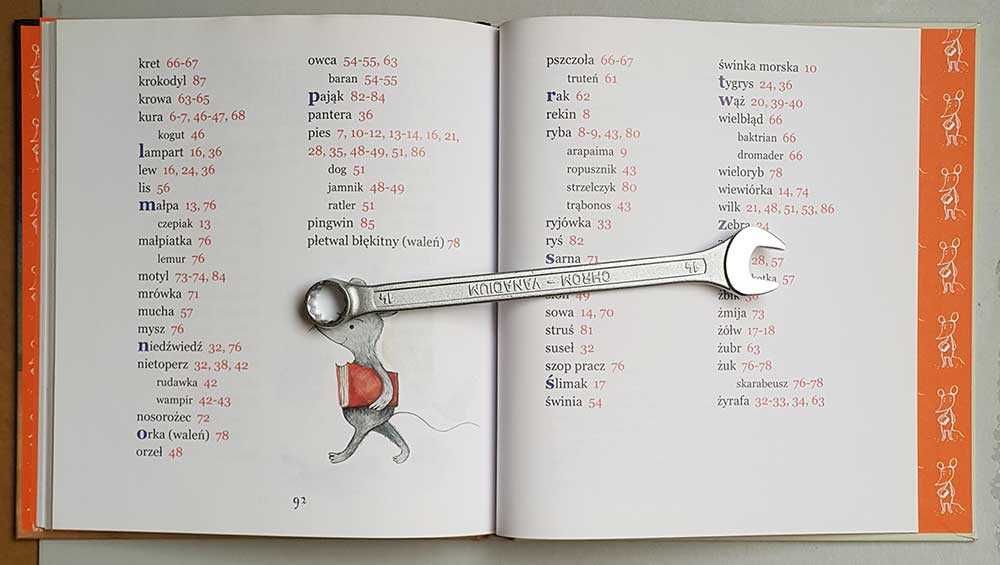 kret 66-67
krokodyl 87
krowa 63-65
kura 6-7, 46-47, 68
kogut 46
lampart 16, 36
lew 16, 24, 36
lis 56
małpa 13, 76
czepiak 13
małpiatka 76
lemur 76
motyl 73-74, 84
mrówka 71
mucha 57
mysz 76
niedźwiedź 32, 76
nietoperz 32, 38, 42
rudawka 42
wampir 42-43
nosorożec 72
orka (waleń) 78
orzeł 48
owca 54-55, 63
baran 54-55
pająk 82-84
pantera 36
pies 7, 10-12, 13-14, 16, 21,
28, 35, 48-49, 51, 86
dog 51
jamnik 48-49
ratler 51
pingwin 85
płetwal błękitny (waleń) 78
92
pszczoła 66-67
truteń 61
rak 62
rekin 8
ryba 8-9, 43, 80
arapaima 9
ropusznik 43
strzelczyk 80
trąbonos 43
ryjówka 33
ryś 82
sarna 71
słoń 49
sowa 14, 70
struś 81
suseł 32
szop pracz 76
ślimak 17
świnia 54
świnka morska 10
tygrys 24, 36
wąż 20, 39-40
wielbłąd 66
baktrian 66
dromader 66
wieloryb 78
wiewiórka 14, 74
wilk 21, 48, 51, 53, 86
zebra
28, 57
57
żbik 36
żmija 73
żółw 17-18
żubr 63
żuk 76-78
skarabeusz 76-78
żyrafa 32-33, 34, 63
14 CHROM - VANADIUM 14